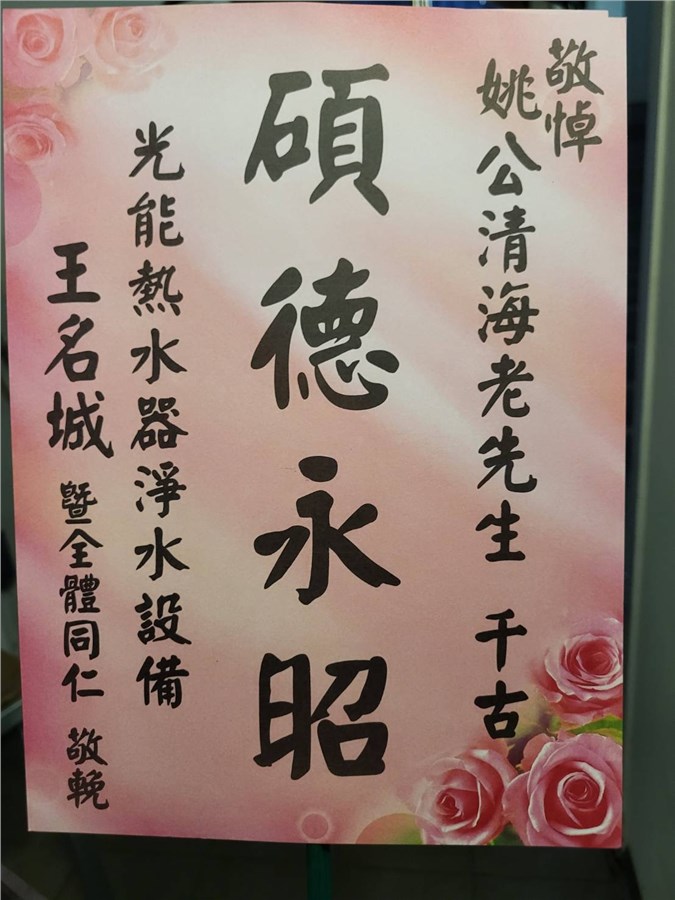 敬悼
姚公清海老先生 千古
碩德永昭
光能熱水器淨水設備
王名城 暨全體同仁 敬輓